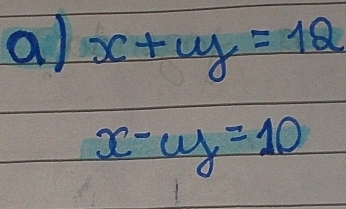 a) x+y=12
x-y=10